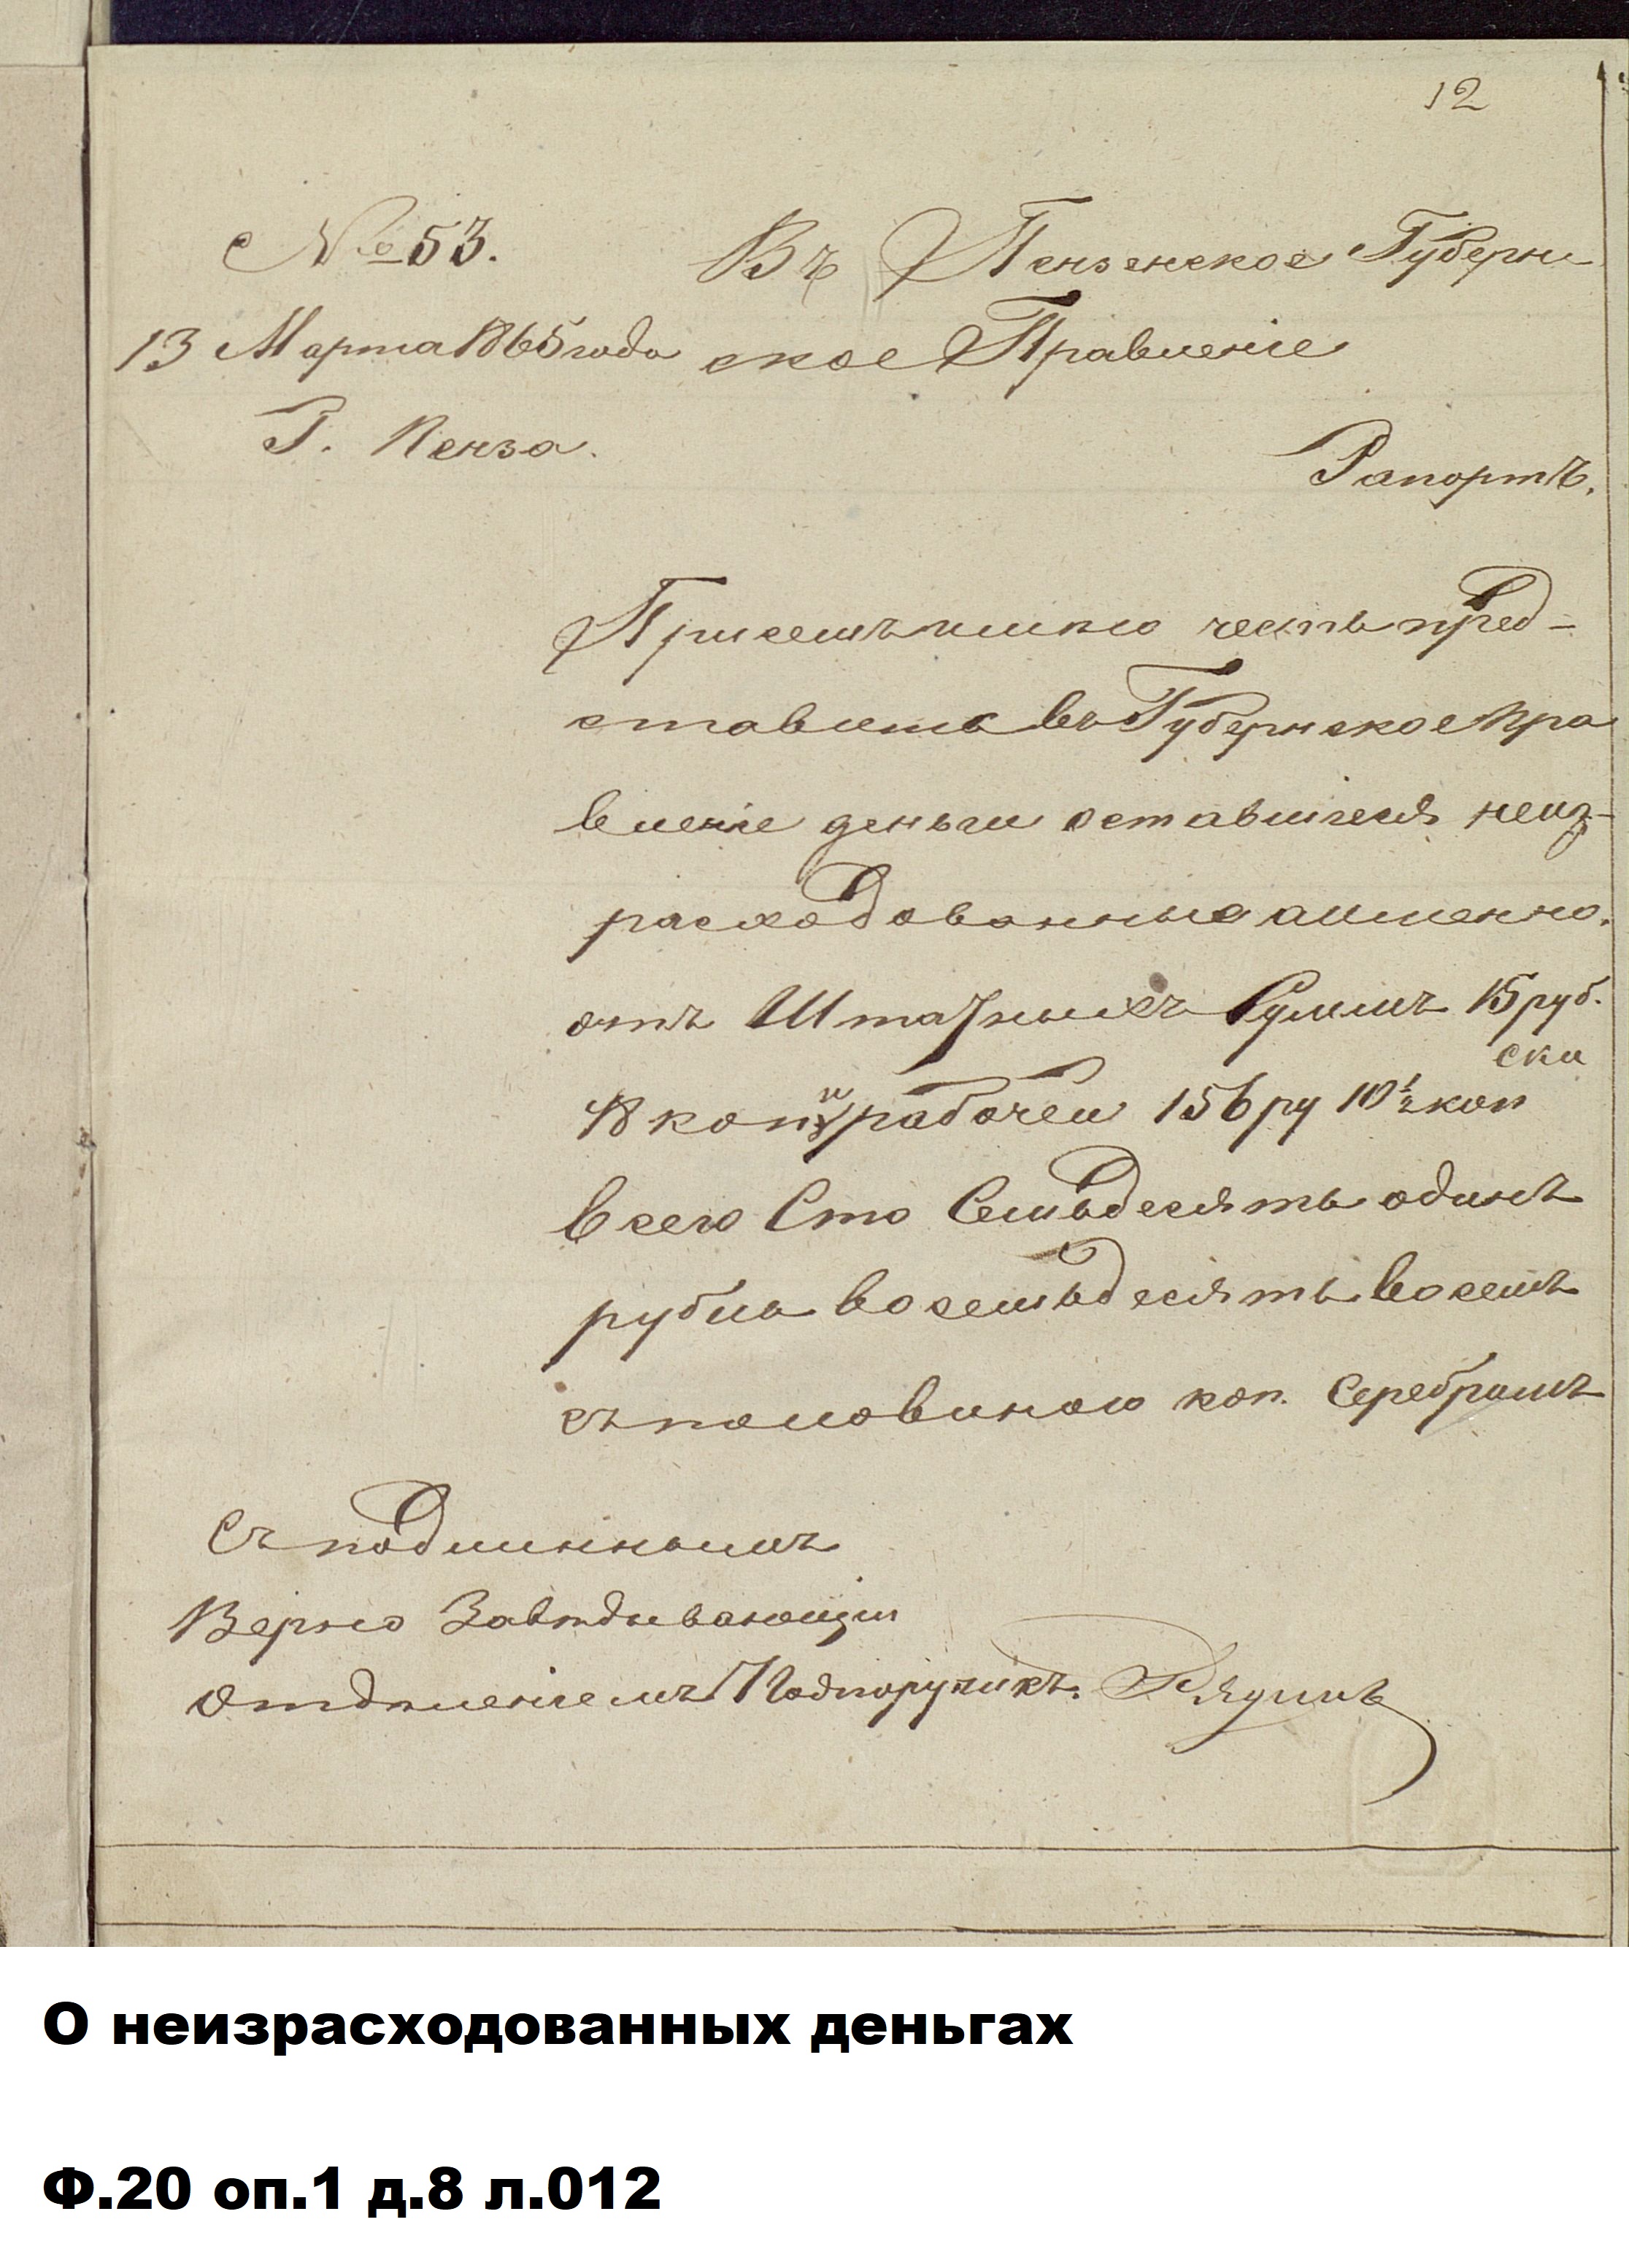 12
№ 53.
Въ Пензенское Губерн
13 Марта 1865 года
ское Правленіе
Г. Пенза.
Рапортъ.
При семъ имѣю честь пред-
ставить въ Губернское Пра
вленіе деньги оставшіеся неиз-
расходованные а именно.
отъ Штатныхъ Суммъ 15 руб.
78 коп и рабочей 156 ру 10 1/2 коп
ски
всего Сто Семьдесятъ одинъ
рубль восемьдесятъ восемь
съ половиною коп. Серебромъ
Съ подлиннымъ
Верно Завѣдывающій
Отдѣленіемъ Подпоручикъ.
О неизрасходованных деньгах
Ф.20 оп.1 д.8 л.012